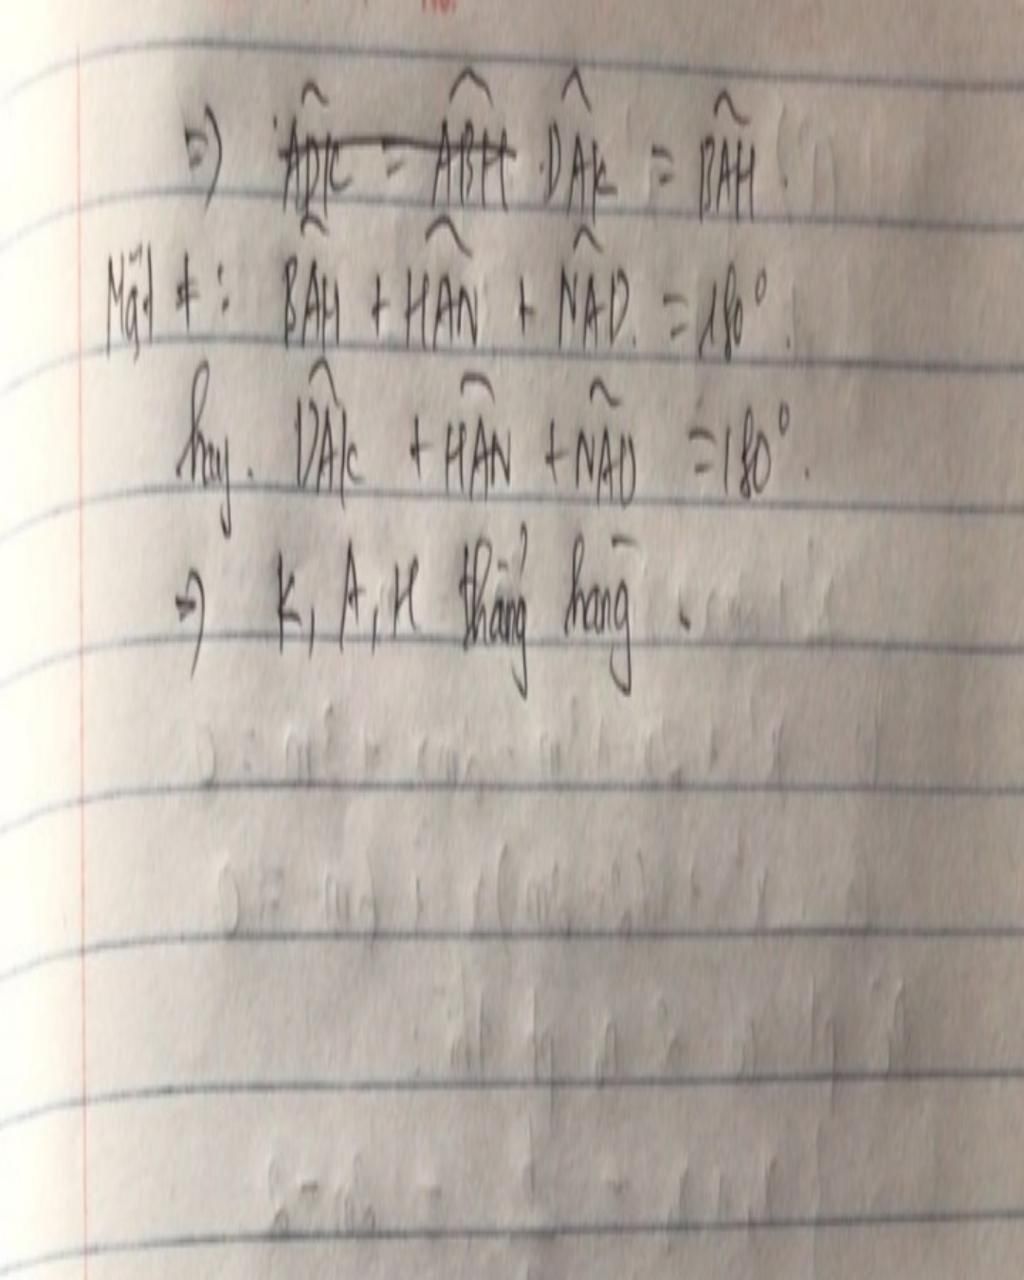 => ADK = ABH DAK = BAH.
Mặt ≠: BAH + HAN + NAD = 180°.
hay. DAK + HAN + NAD = 180°.
=> K, A, H thẳng hàng.